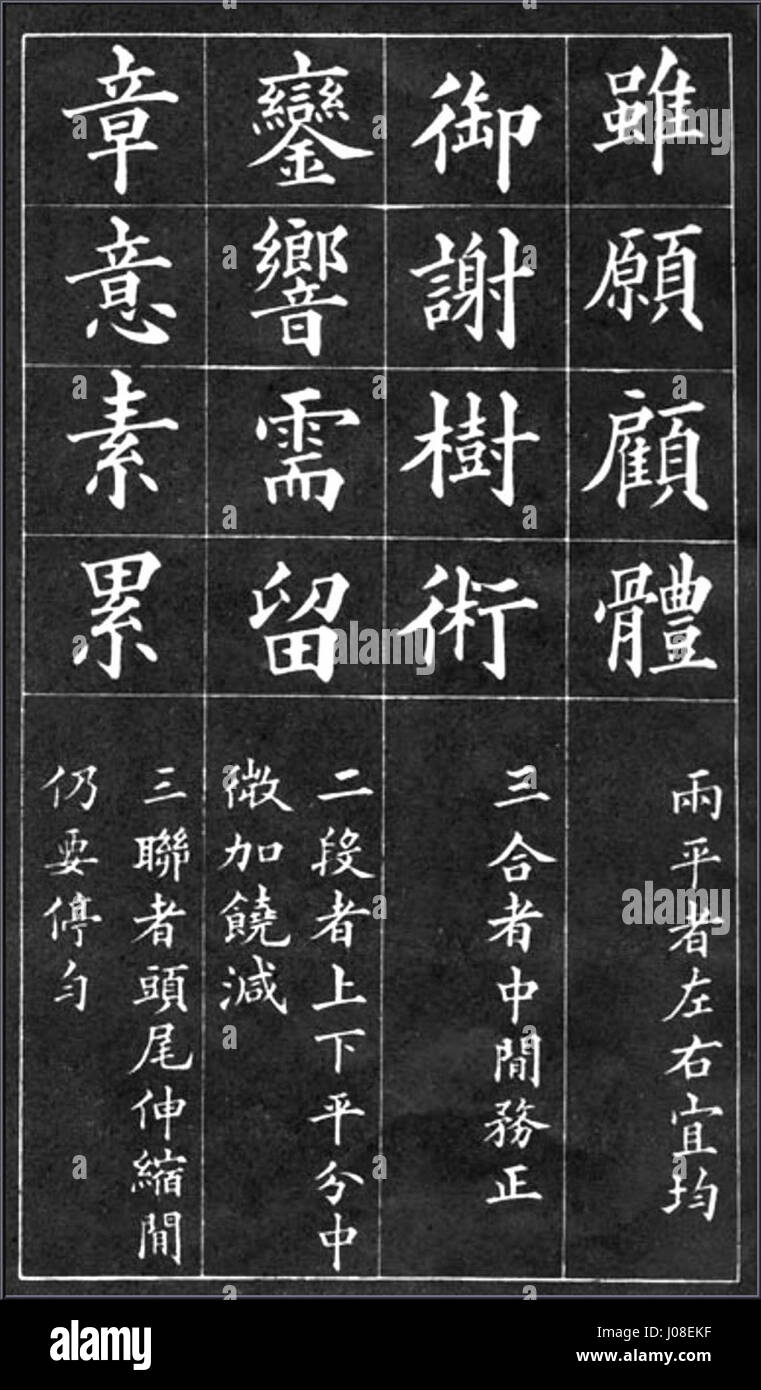 雖願顧體
兩平者左右宜均
御謝樹術
三合者中間務正
鑾響需留
二段者上下平分中
微加饒減
章意素累
三聯者頭尾伸縮間
仍要停勻
alamy
Image ID: J08EKF
www.alamy.com